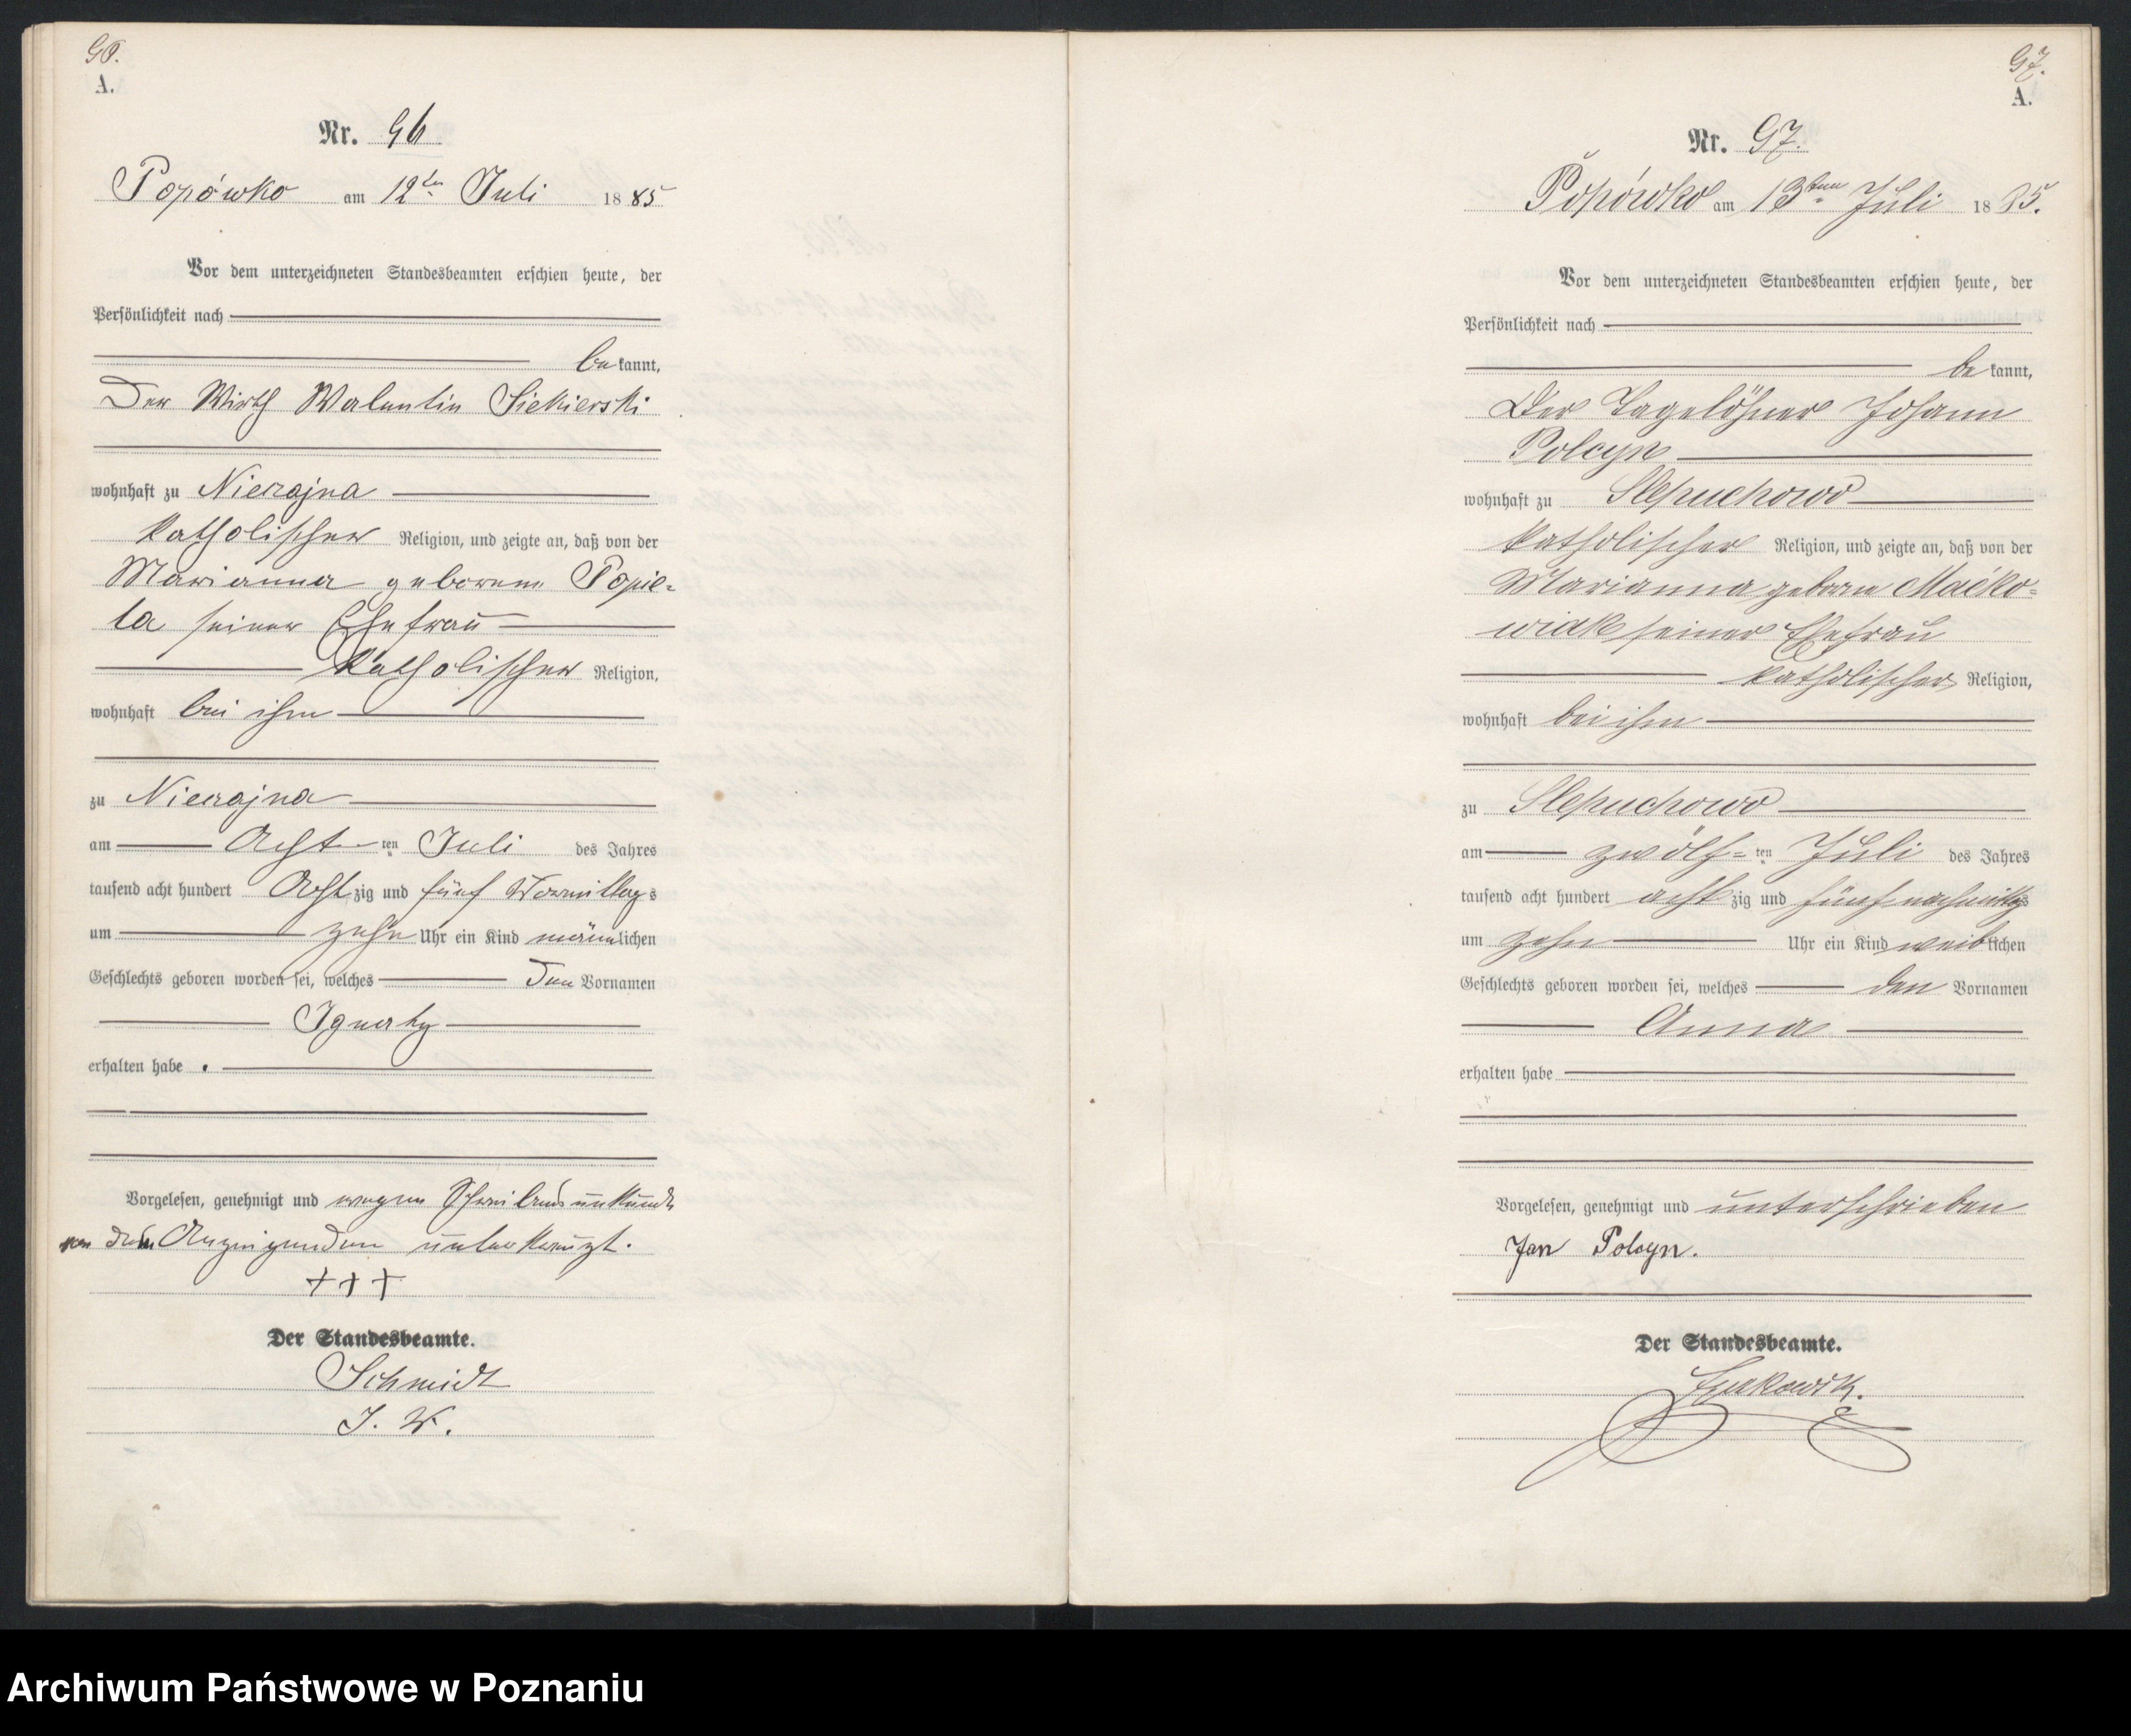 96.
A.
Nr. 96
Popówko am 12ten Juli 1885
Vor dem unterzeichneten Standesbeamten erschien heute, der
Persönlichkeit nach
bekannt,
Der Wirth Valentin Siekierski
wohnhaft zu Nieczajna
katholischer Religion, und zeigte an, daß von der
Marianna geborene Popie-
la seiner Ehefrau
katholischer Religion,
wohnhaft bei ihm
zu Nieczajna
am Acht-ten Juli des Jahres
tausend acht hundert Achtzig und fünf Vormittags
um zehn Uhr ein Kind männlichen
Geschlechts geboren worden sei, welches den Vornamen
Ignatz
erhalten habe.
Vorgelesen, genehmigt und wegen Schreibensunkunde
von dem Anzeigenden unterkreuzt.
+++
Der Standesbeamte.
Schmidt
J. V.
97.
A.
Nr. 97.
Popówko am 13ten Juli 1885.
Vor dem unterzeichneten Standesbeamten erschien heute, der
Persönlichkeit nach
bekannt,
Der Tagelöhner Johann
Polcyn
wohnhaft zu Slepuchowo
katholischer Religion, und zeigte an, daß von der
Marianna geboren Maćko-
wiak seiner Ehefrau
katholischer Religion,
wohnhaft bei ihm
zu Slepuchowo
am zwölf-ten Juli des Jahres
tausend acht hundert achtzig und fünf nachmittags
um zehn Uhr ein Kind weiblichen
Geschlechts geboren worden sei, welches den Vornamen
Anna
erhalten habe
Vorgelesen, genehmigt und unterschrieben
Jan Polcyn.
Der Standesbeamte.
Archiwum Państwowe w Poznaniu